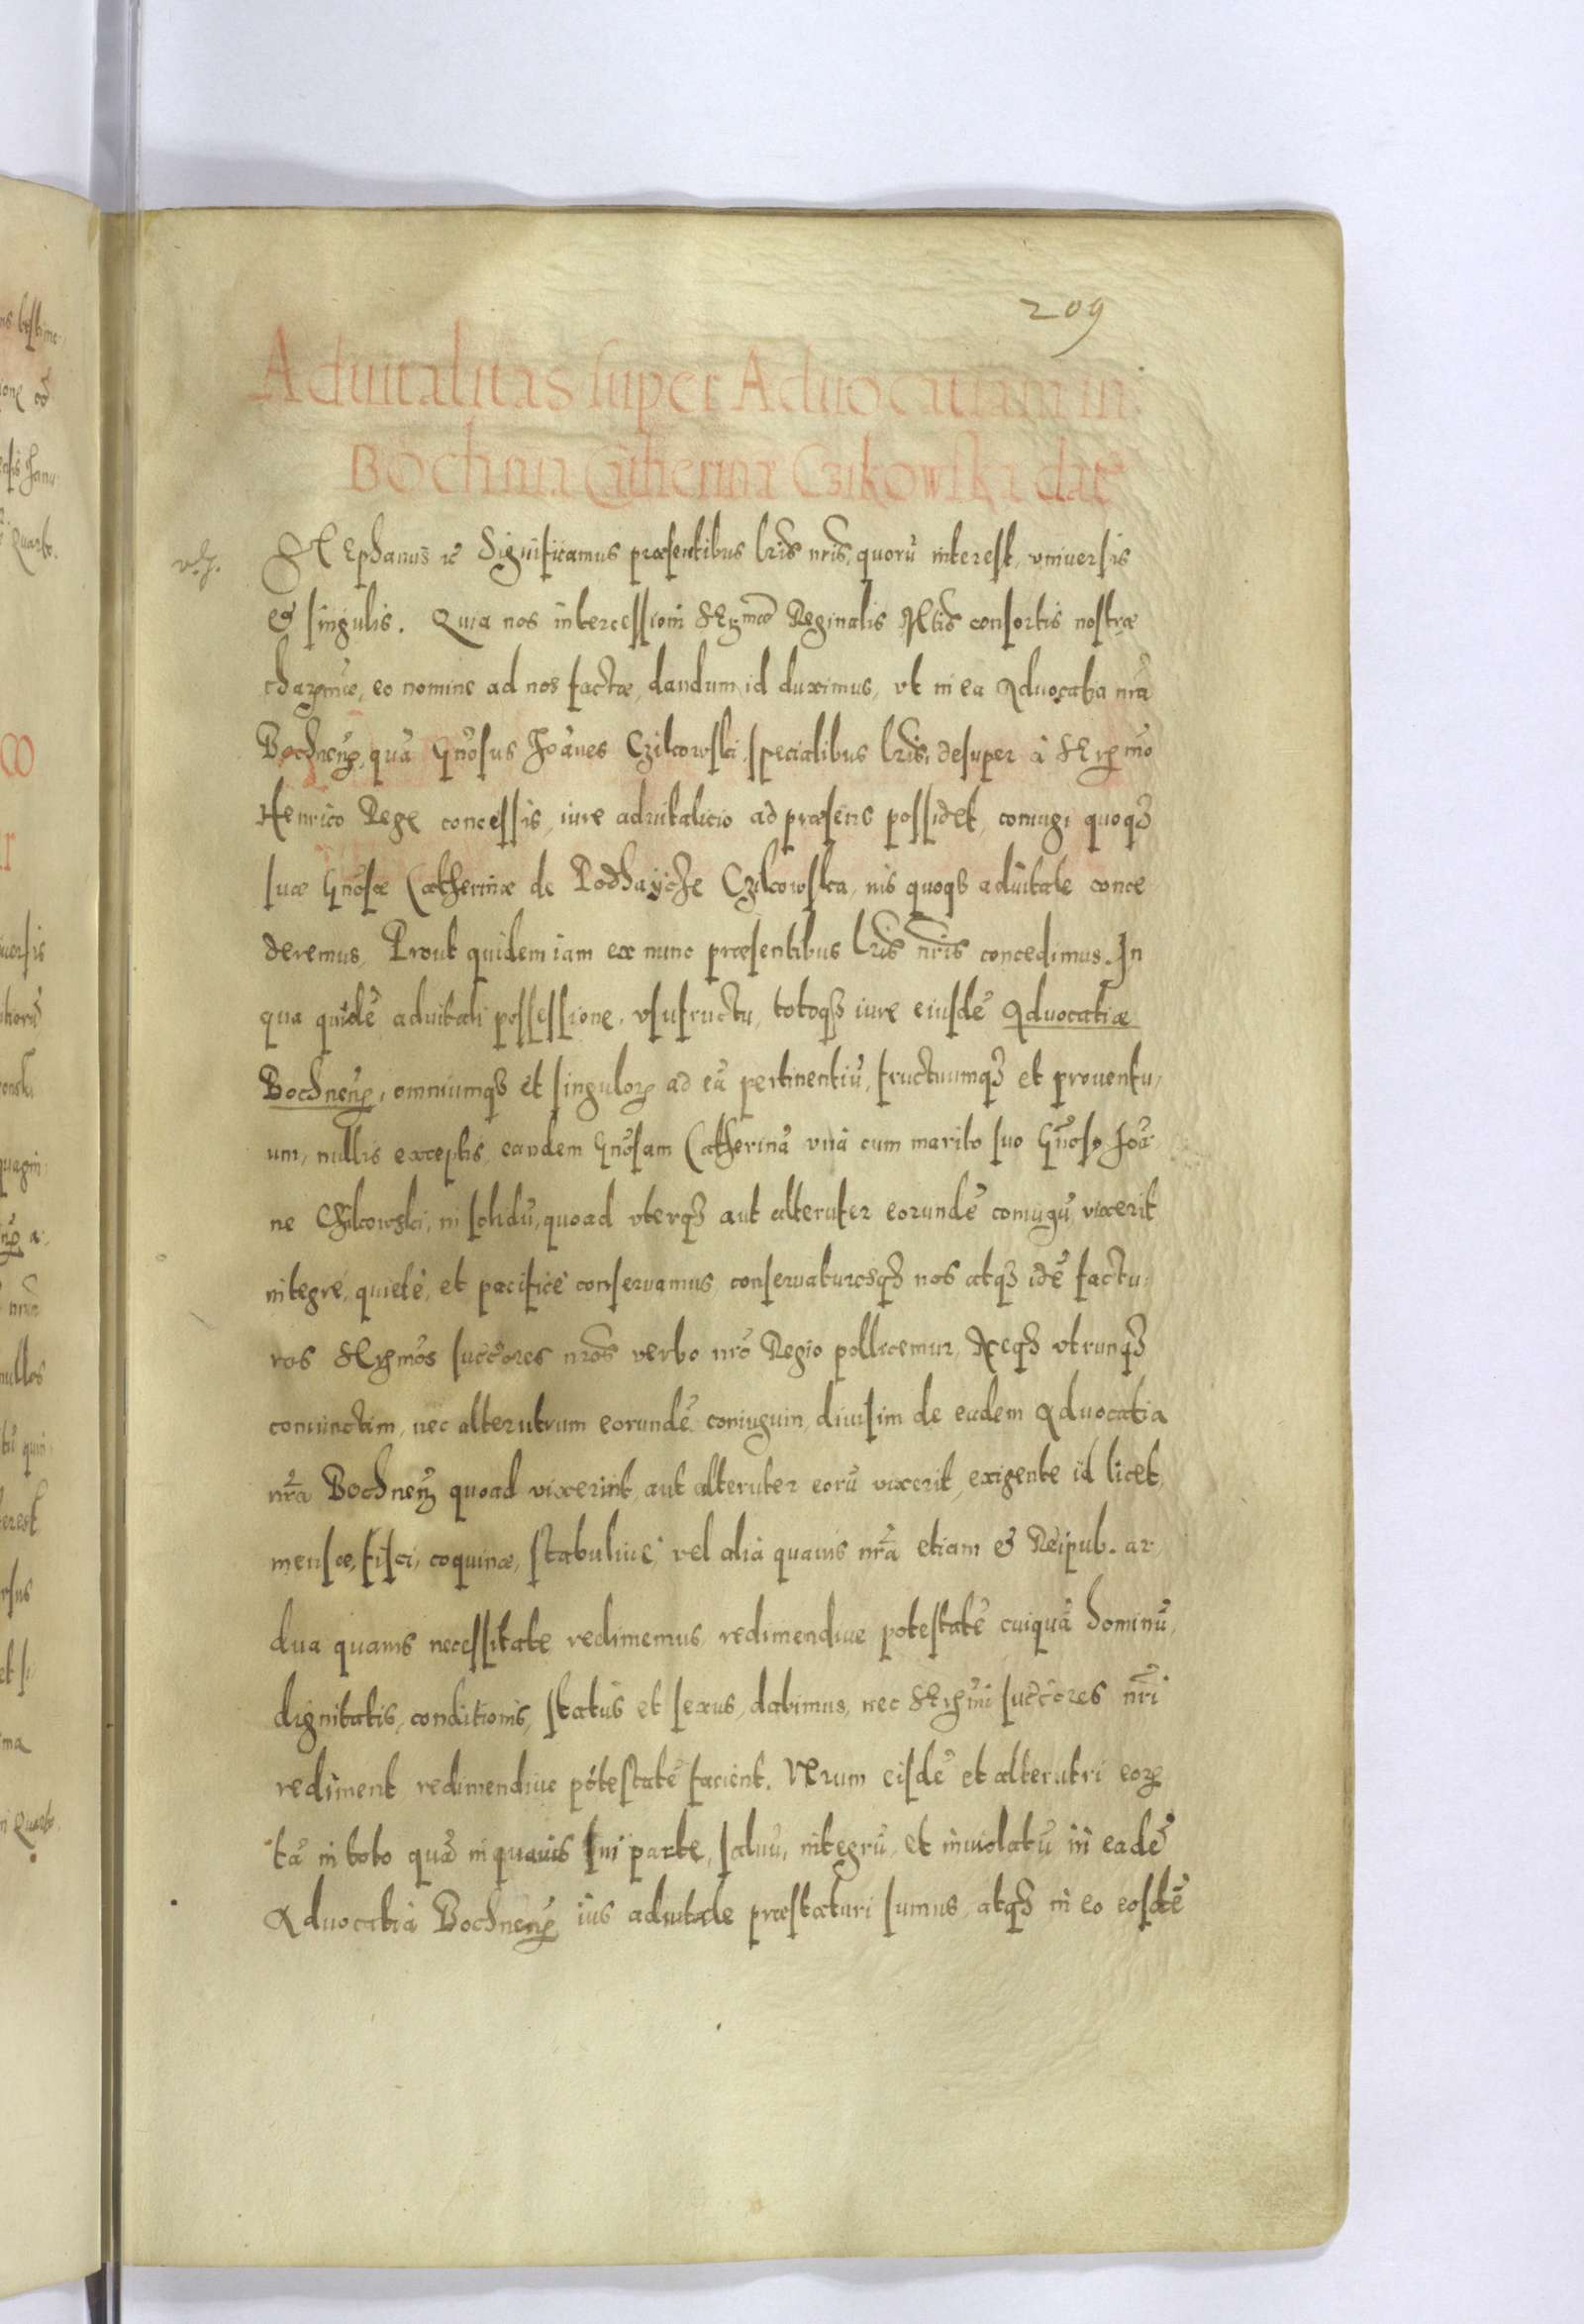 209
Aduitalitas super Aduocatiam in
Bochnia Catherinæ Czikowska datẽ
Stephanus ꝛc̃ Significamus præsentibus lr̃is nr̃is, quorũ interest, vniuersis
et singulis. Quia nos intercessioni Sermæ Reginalis Mtis consortis nostræ
charmæ, eo nomine ad nos factæ, dandum id duximus, vt in ea Aduocatia nr̃a
Bochneñ, quã Gñosus Joãnes Czikowski, specialibus lr̃is, desuper à Sermo
Henrico Rege concessis, iure aduitalicio ad præsens possidet, coniugi quoqȝ
suæ Gñosæ Catherinæ de Podhaycze Czikowska, ius quoqȝ aduitale conce
deremus, Prout quidem iam ex nunc præsentibus lr̃is nr̃is concedimus. In
qua quidẽ aduitali possessione, vsufructu, totoqȝ iure eiusdẽ Aduocatiæ
Bochneñ, omniumqȝ et singulorꝝ ad eã pertinentiũ, fructuumqȝ et prouentu,
um, nullis exceptis, eandem Gñosam Catherinã vnà cum marito suo Gñoso Joã
ne Czikowski, in solidũ, quoad vterqȝ aut alteruter eorundẽ coniugũ vixerit
integrè, quietè, et pacificè conseruamus, conseruaturosqȝ nos atqȝ idẽ factu,
ros Sermos succ̃ores nr̃os verbo nr̃o Regio pollicemur, Neqȝ vtrunqȝ
coniunctim, nec alterutrum eorundẽ coniugum, diuisim de eadem Aduocatia
nr̃a Bochneñ quoad vixerint, aut alteruter eorũ vixerit, exigente id licet,
mensæ, fisci, coquinæ, stabuliue, vel alia quauis nr̃a etiam et Reipub. ar
dua quauis necessitate redimemus, redimendiue potestatẽ cuiquã hominũ,
dignitatis, conditionis, status et sexus, dabimus, nec Sermi succ̃ores nr̃i
rediment redimendiue potestatẽ facient. Verum eisdẽ et alterutri eorꝝ
tã in toto quã in quauis sui parte, saluũ, integrũ, et inuiolatũ in eadẽ
Aduocatia Bochneñ ius aduitale præstaturi sumus, atqȝ in eo eosdẽ